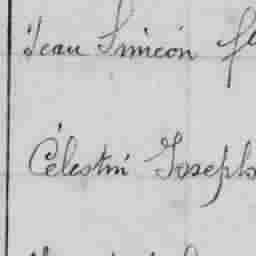 Jean Siméon
Célestin Joseph